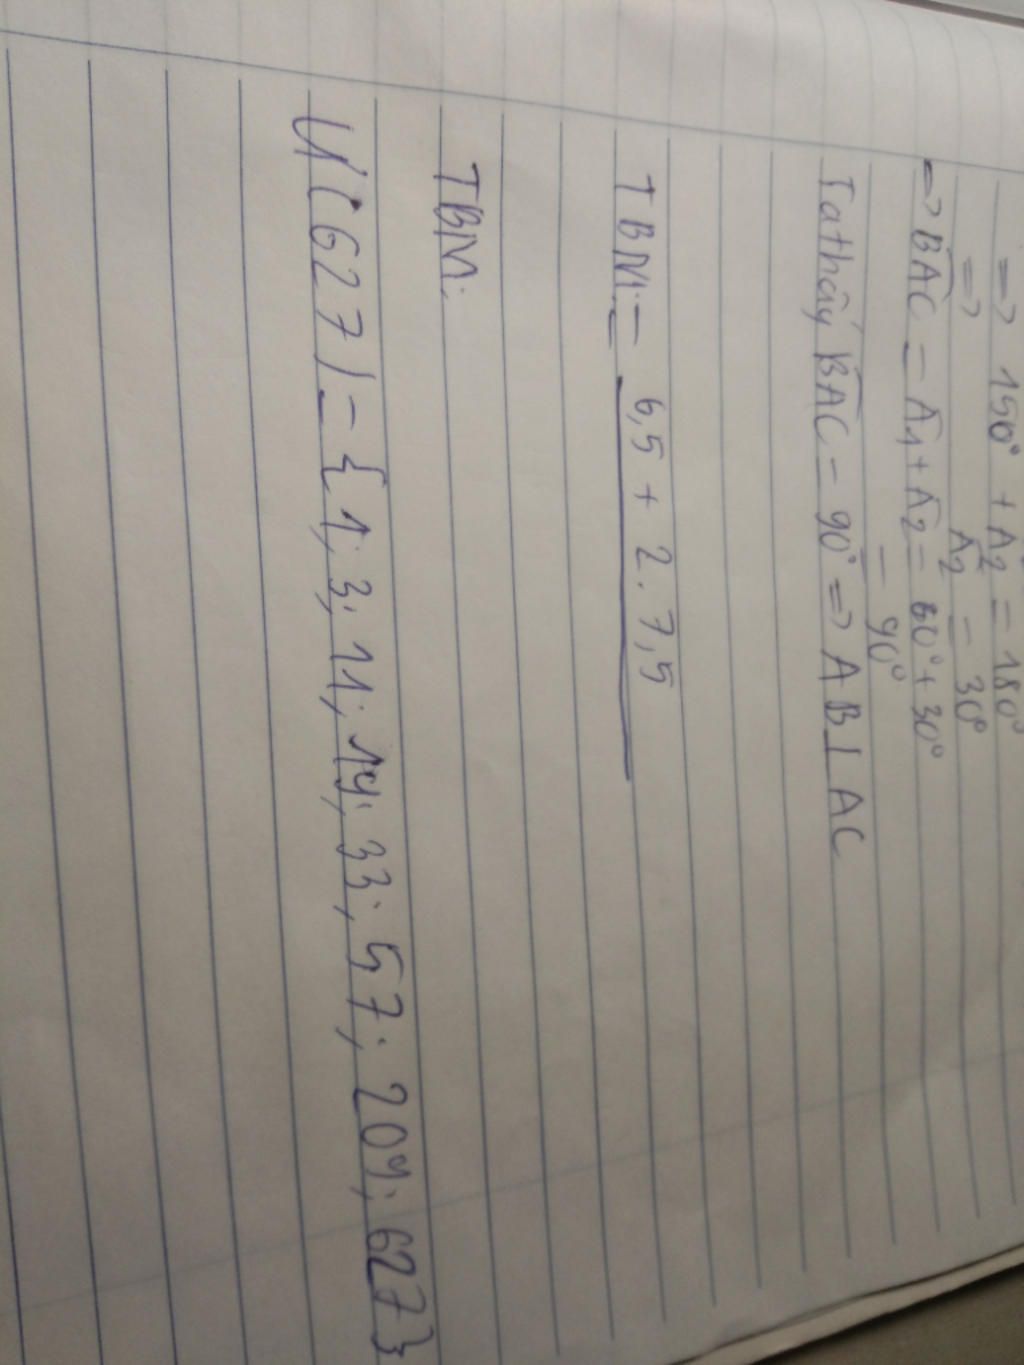 => 150° + Â2 = 180°
=> Â2 = 30°
=> BAC = Â1 + Â2 = 60° + 30°
= 90°
Ta thấy BAC = 90° => AB ⊥ AC
TBM = 6,5 + 2.7,5
TBM:
Ư(627) = {1; 3; 11; 19; 33; 57; 209; 627}